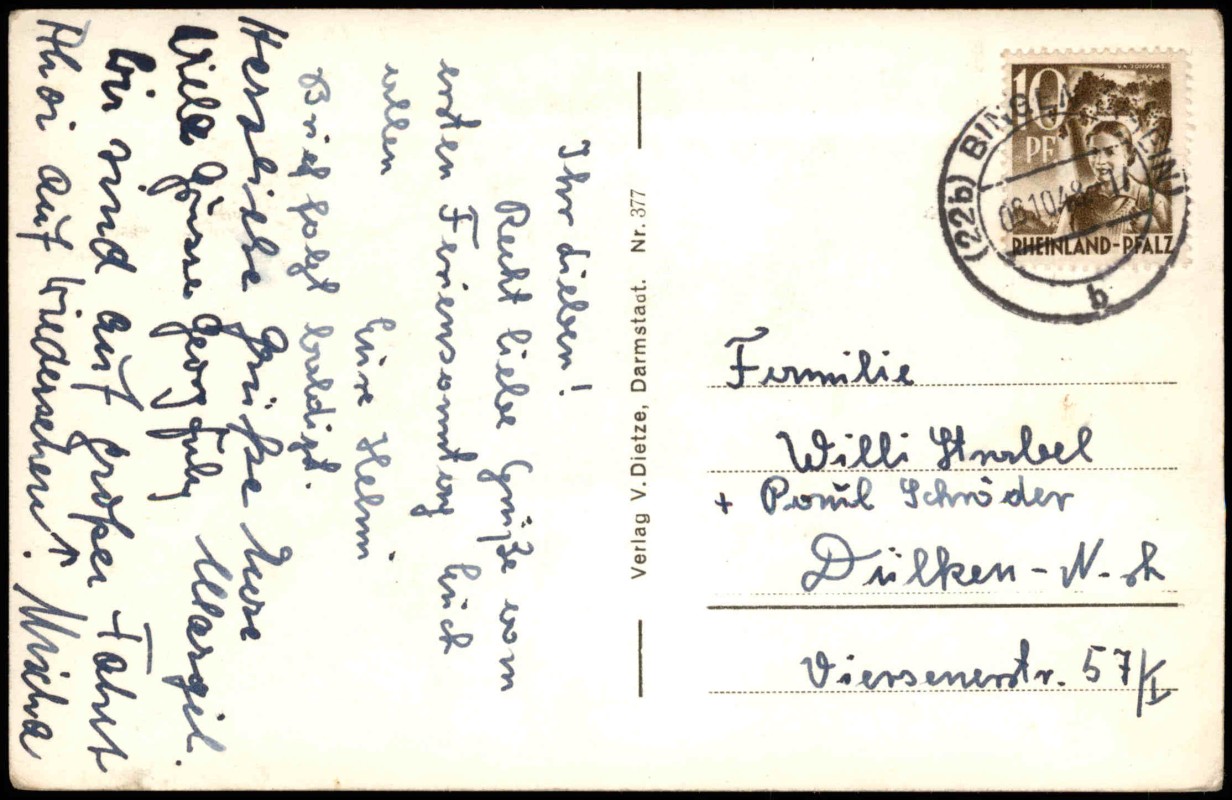 Ihr Lieben!
Recht liebe Grüße vom
ersten Feriensonntag Euch
allen
Eure Helmi
Brief folgt baldigst.
Herzliche Grüße Eure Margit.
Viele Grüsse Georg
Wir sind auf großer Fahrt
Ahoi auf Wiedersehen! Mischa
Verlag V. Dietze, Darmstadt. Nr. 377
10
PF
RHEINLAND-PFALZ
(22b) BINGEN (RHEIN)
06.10.48
b
Familie
Willi Strabel
+ Paul Schröder
Dülken-N.rh
Viersenerstr. 57/I